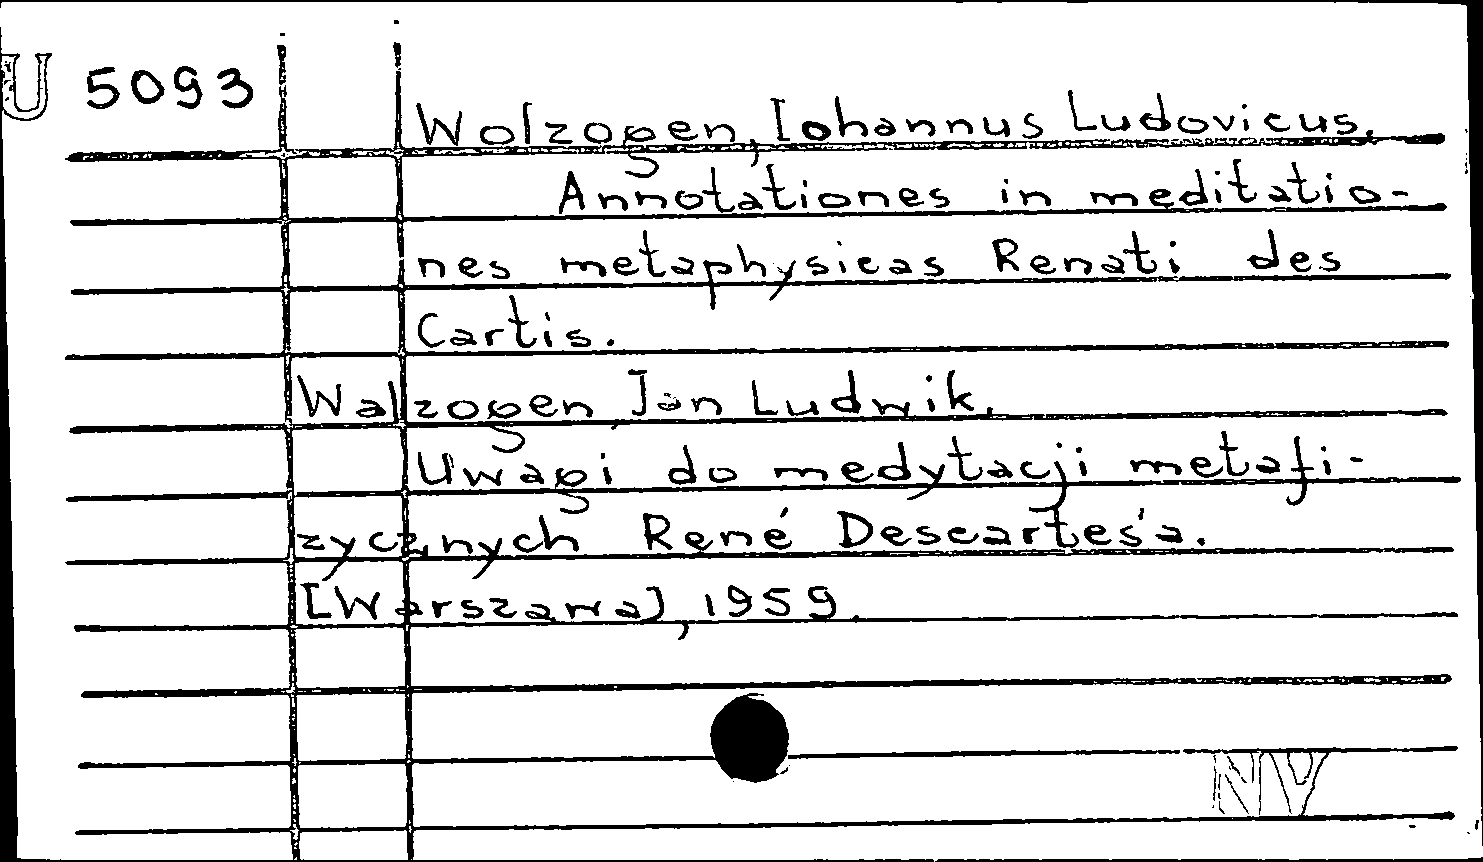 U 5093
Wolzogen, Iohannus Ludovicus.
Annotationes in meditatio-
nes metaphysicas Renati des
Cartis.
Walzogen Jan Ludwik.
Uwagi do medytacji metafi-
zycznych René Descartes'a.
[Warszawa], 1959.
NV